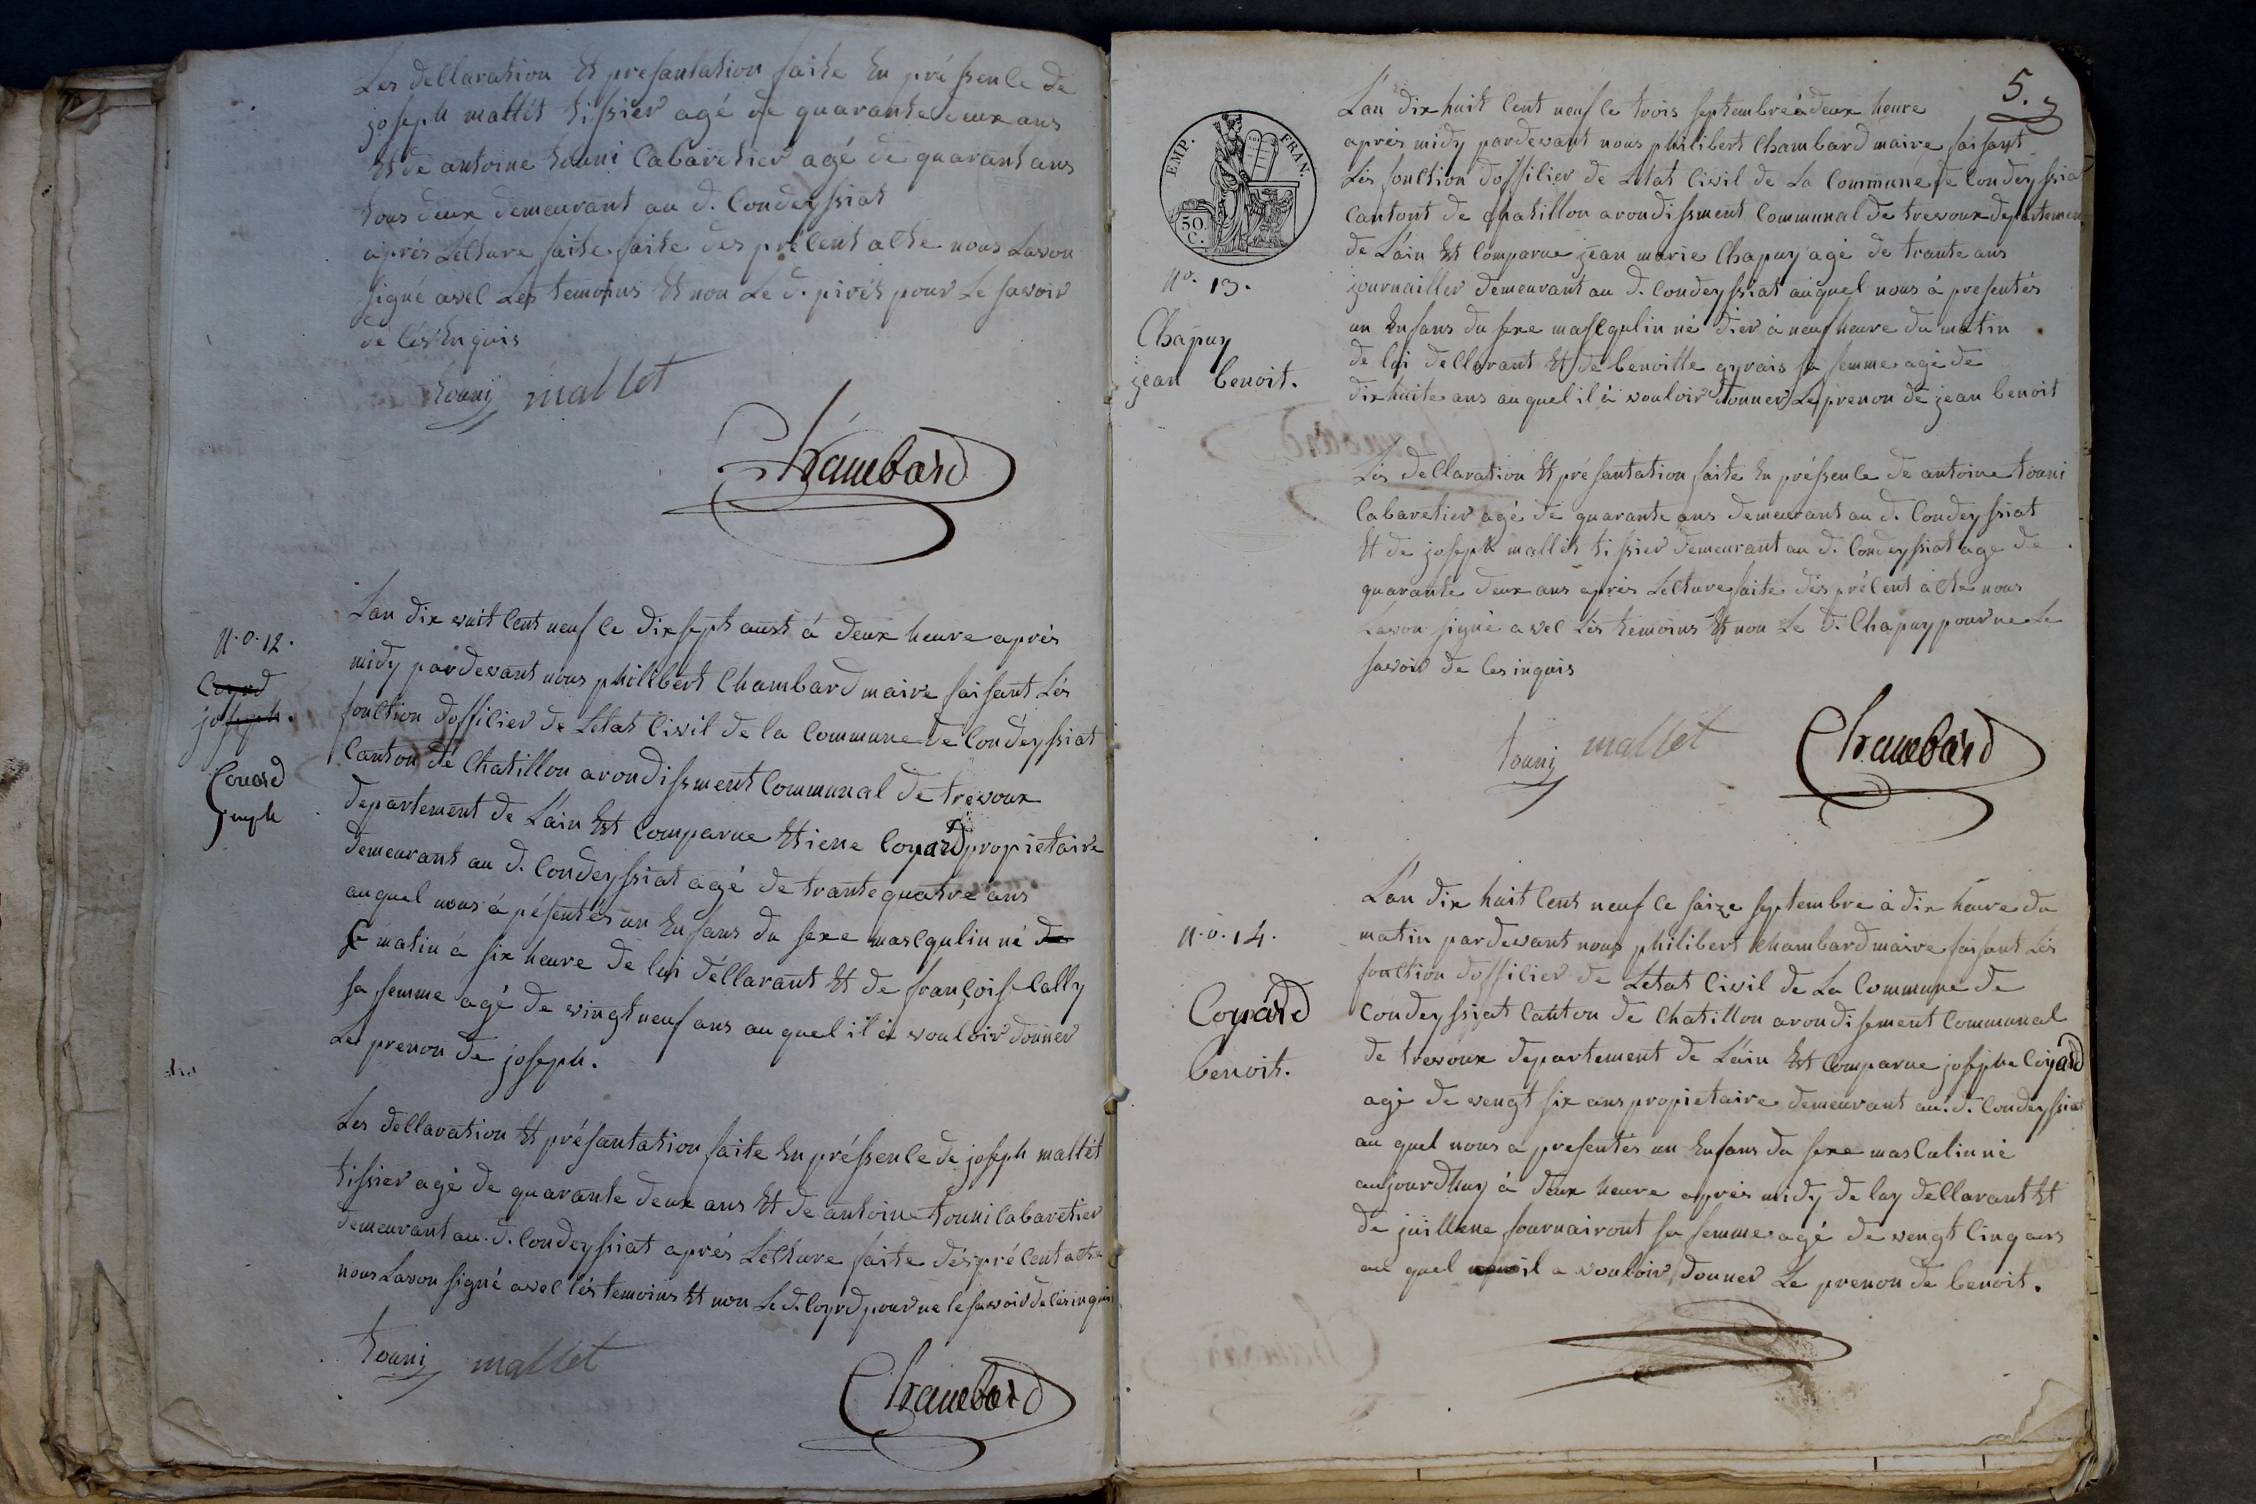 Les déllaration Et presantation faite En préssence de
joseph mallét tissier agé de quarante deux ans
Et de antoine touni Cabaretier agé de quarant ans
tous deux demeurant au d. Condeyssiat
aprés Lecture faite faite des précent acte nous Lavon
signé avec Les temoins Et non Le d. pivét pour Le savoir
de cés Enquis
touni mallet
Chambard
n.o. 12.
Coyrd
joseph.
Couard
joseph
Lan dix wuit Cent neuf le dix sept aust à deux heure aprés
midy pardevant nous philibert Chambard maire faisant Lés
fonction dofficier de Létat Civil de la Commune de Condeyssiat
Canton de Chatillon arondissment Communal de trevoux
département de L'áin Est Comparue Etiene Coyard propietaire
demeurant au d. Condeyssiat agé de trante quatre ans
auquel nous à pésentés un Enfans du sexe mascqulin né de
Ce matin à six heure de lui déllarant Et de françoise Cally
sa femme agé de vingt neuf ans au quel il à vouloir donner
Le prenon de joseph.
Les déllaration Et présantation faite En préssence de joseph mallét
tissier agé de quarante deux ans Et de antoine touni Cabaretier
demeurant au. d. Condeyssiat aprés Lecture faite dés précent acte
nous Lavon signé avec lés temoins Et non Le d. Coyrd pour ne le savoir de cés inquis
touni mallét
Chambard
5.
EMP. FRAN.
50 C.
Lan dix huit Cent neuf le trois septembre à deux heure
aprés midy pardevant nous philibert Chambard maire faisant
Lés fonction dofficier de Létat Civil de La Commune de Condeyssiat
Cantont de chatillon arondissment Communal de trevoux departement
de L'áin Est Comparue jean marie Chapuy agé de trante ans
journailler demeurant au d. Condeyssiat auquel nous à presentés
un Enfans du sexe mascqulin né d'ier à neuf heure du matin
de lui dellarant Et de benoitte gyvais sa femme agé de
dix huite ans au quel il à vouloir donner Le prenon de jean benoit
n.o. 13.
Chapuy
jean benoit.
Lés déllaration Et présantation faite En préssence de antoine touni
Cabaretier agé de quarante ans demeurant au d. Condeyssiat
Et de joseph mallét tissier demeurant au d. Condeyssiat age de
quarante deux ans aprés Lecture faite dés précent acte nous
Lavon signé avec Lés temoins Et non Le d. Chapuy pour ne Le
savoir de ces inquis
touni mallét Chambard
n.o. 14.
Coyard
benoit.
L'an dix huit Cent neuf le saize septembre à dix heure du
matin pardevant nous philibert chambard maire faisant Lés
fonction dofficier de Létat Civil de La Commune de
Condeyssiat Canton de Chatillon arondisement Communal
de trevoux departement de L'áin Est Comparue josephe Coyard
agé de vengt six ans propietaire demeurant au. d. Condeyssiat
au quel nous a presentés un Enfans du sexe masculin né
aujourdhuy à deux heure aprés midy de luy dellarant Et
de juillene fournairont sa femme agé de vengt Cinq ans
au quel il a vouloir donner Le prenon de benoit.